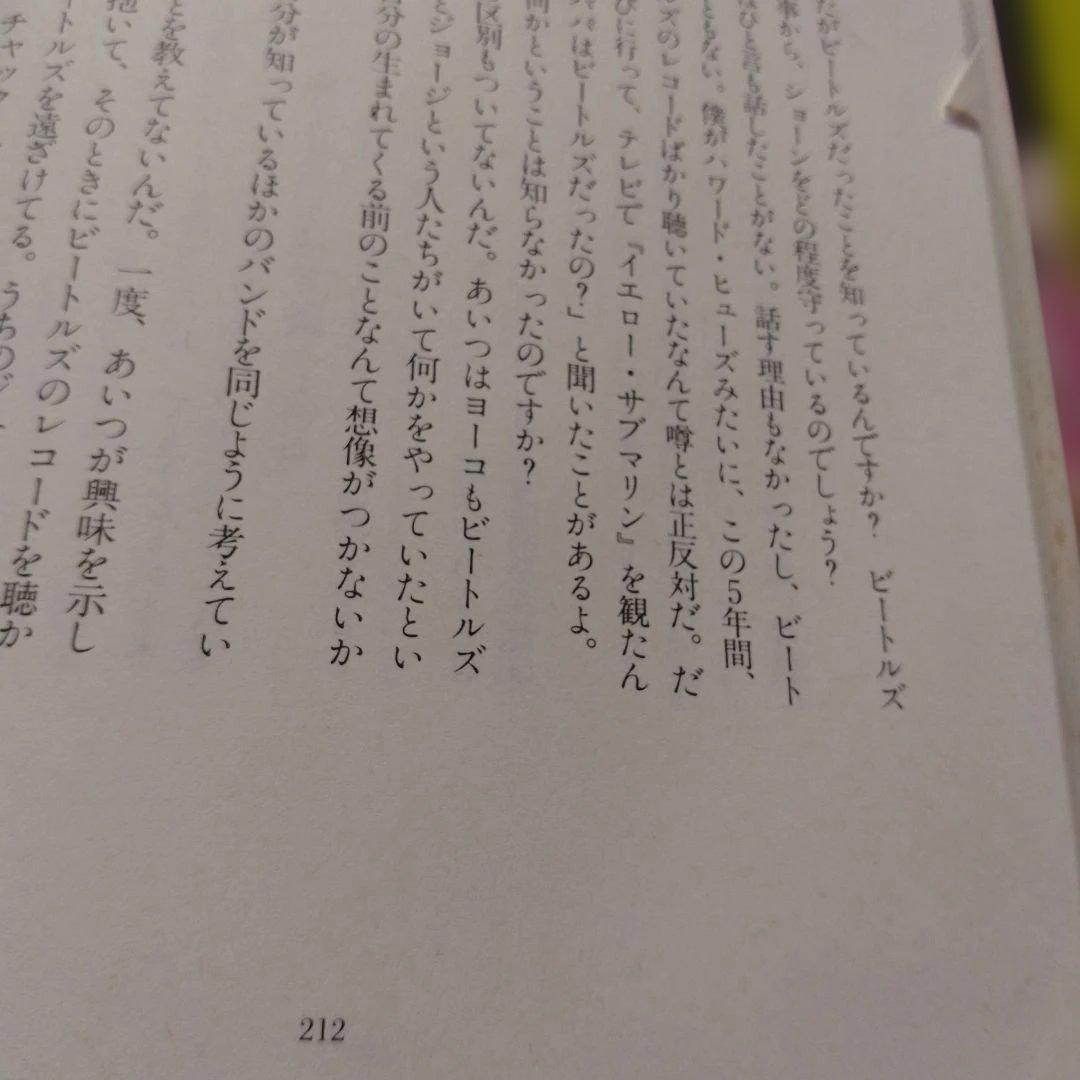 たがビートルズだったことを知っているんですか？　ビートルズ
事から、ショーンをどの程度守っているのでしょう？
ひと言も話したことがない。話す理由もなかったし、ビート
ともない。僕がハワード・ヒューズみたいに、この5年間、
ズのレコードばかり聴いていたなんて噂とは正反対だ。だ
びに行って、テレビで『イエロー・サブマリン』を観たん
パパはビートルズだったの？」と聞いたことがあるよ。
何かということは知らなかったのですか？
区別もついてないんだ。あいつはヨーコもビートルズ
とジョージという人たちがいて何かをやっていたとい
分の生まれてくる前のことなんて想像がつかないか
分が知っているほかのバンドを同じように考えてい
とを教えてないんだ。一度、あいつが興味を示し
抱いて、そのときにビートルズのレコードを聴か
トルズを遠ざけてる。うちの
チャック
212